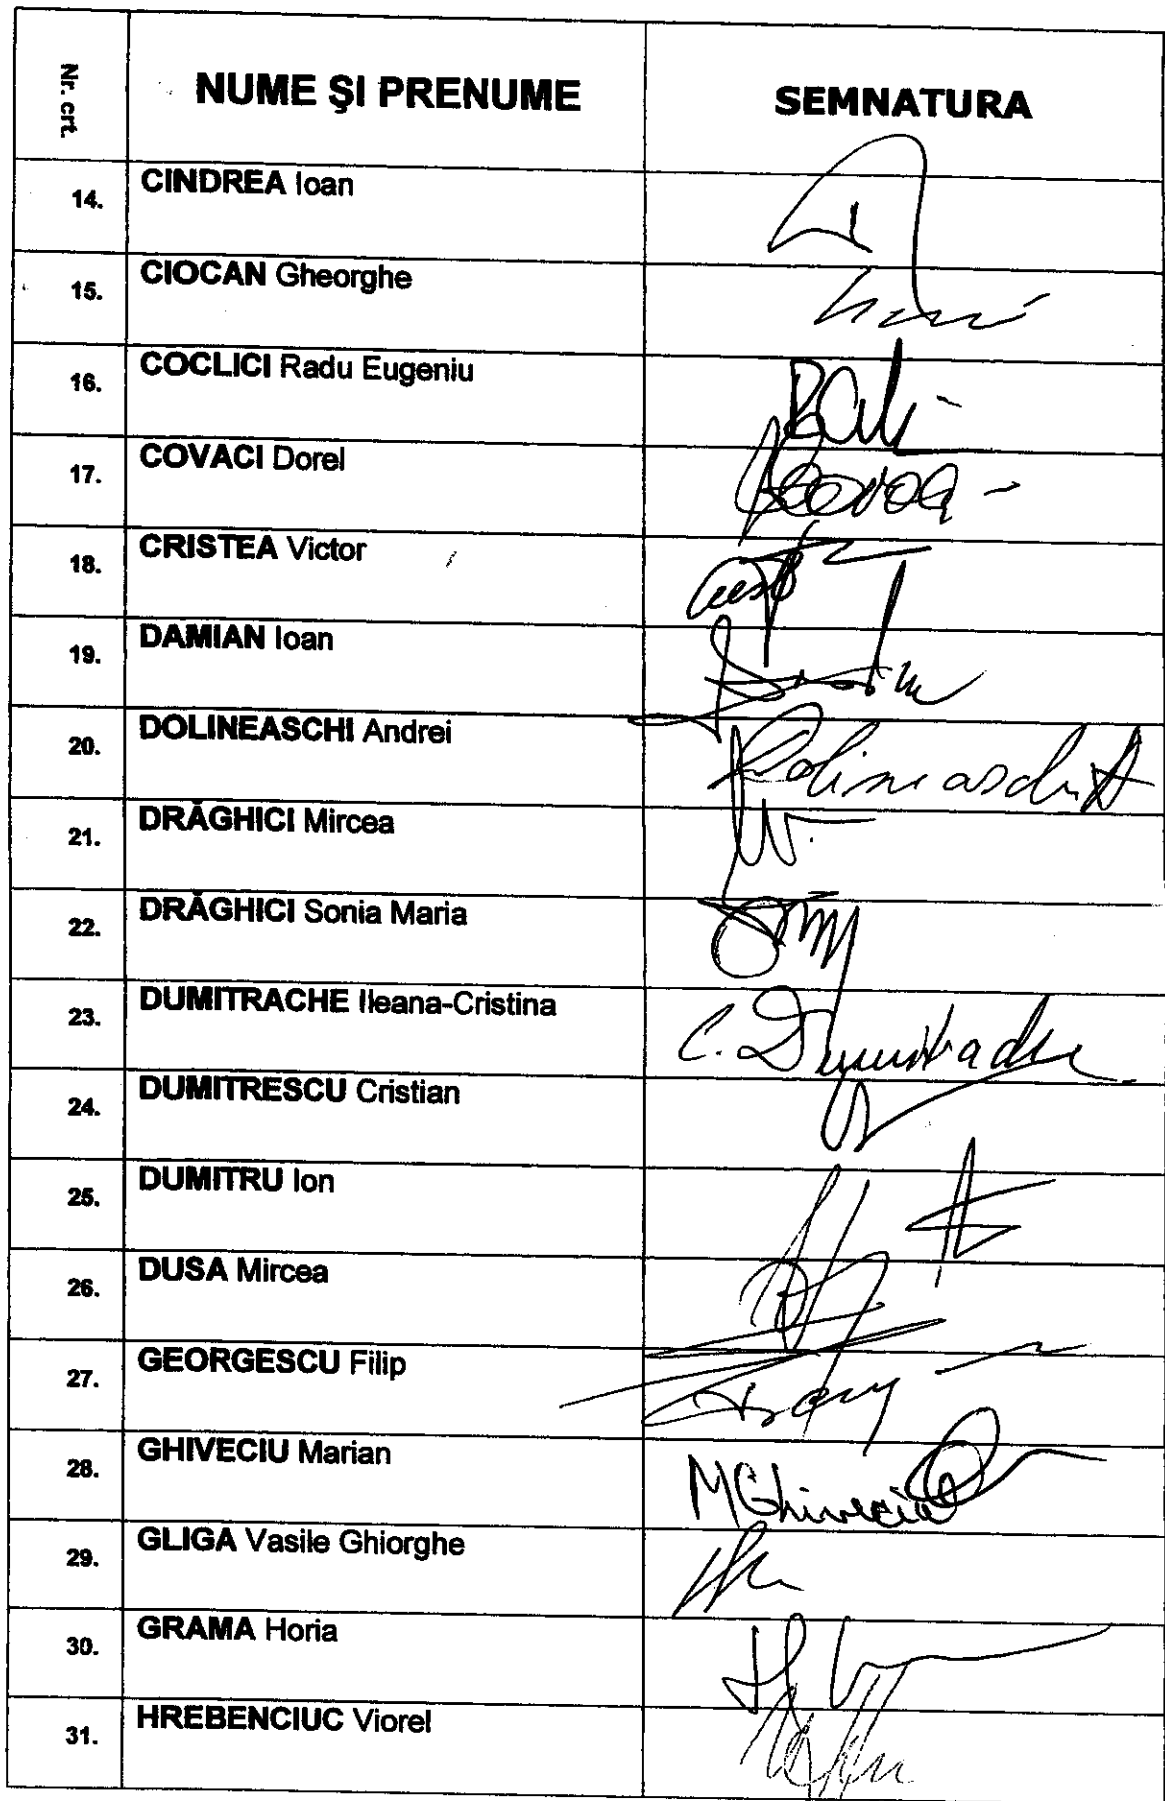 Nr. crt. NUME ŞI PRENUME SEMNATURA
14. CINDREA Ioan
15. CIOCAN Gheorghe
16. COCLICI Radu Eugeniu
17. COVACI Dorel
18. CRISTEA Victor
19. DAMIAN Ioan
20. DOLINEASCHI Andrei Dolineaschi A
21. DRĂGHICI Mircea
22. DRĂGHICI Sonia Maria
23. DUMITRACHE Ileana-Cristina C. Dumitrache
24. DUMITRESCU Cristian
25. DUMITRU Ion
26. DUSA Mircea
27. GEORGESCU Filip
28. GHIVECIU Marian MGhiveciu
29. GLIGA Vasile Ghiorghe
30. GRAMA Horia
31. HREBENCIUC Viorel